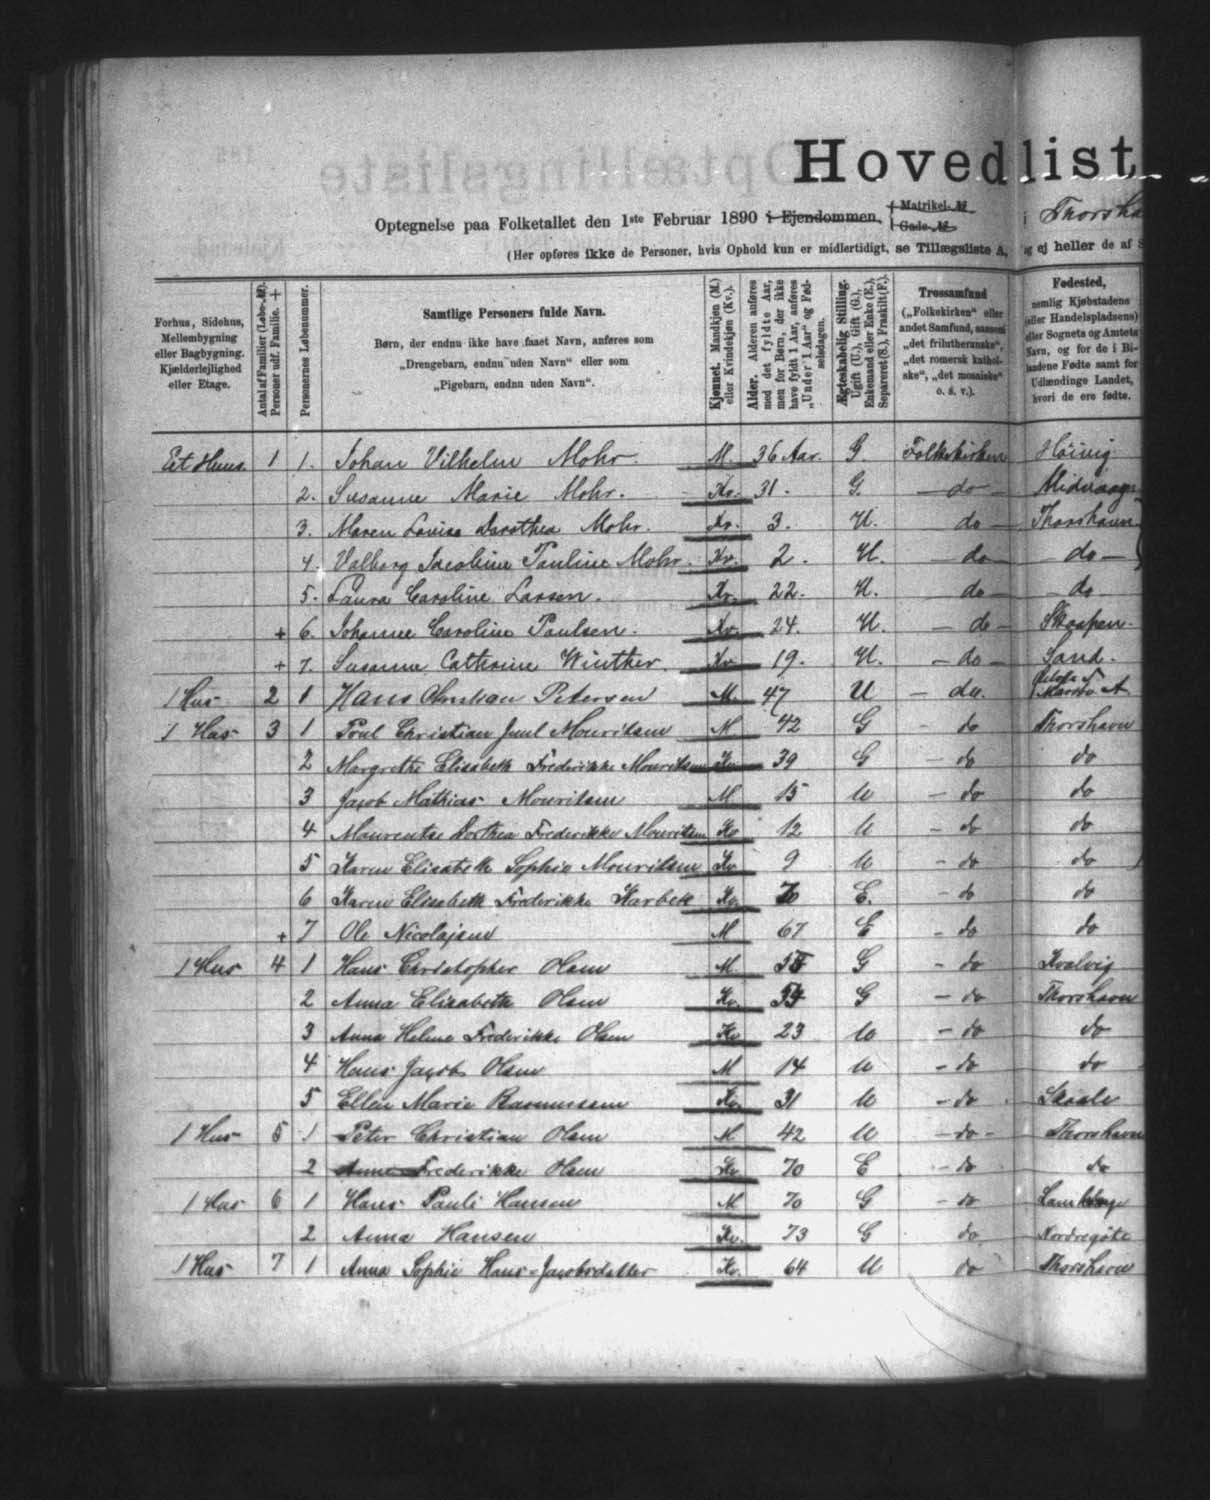 Hovedlist
Optegnelse paa Folketallet den 1ste Februar 1890 i Ejendommen, Matrikel-№ i Thorsha
Gade-№
(Her opføres ikke de Personer, hvis Ophold kun er midlertidigt, se Tillægsliste A, og ej heller de af S
Forhus, Sidehus, Mellembygning eller Bagbygning. Kjælderlejlighed eller Etage.
Antal af Familier (Løbe-№). Personer udf. Familie. +
Personernes Løbenummer.
Samtlige Personers fulde Navn.
Børn, der endnu ikke have faaet Navn, anføres som „Drengebarn, endnu uden Navn“ eller som „Pigebarn, endnu uden Navn“.
Kjønnet. Mandkjøn (M.) eller Kvindekjøn (Kv.).
Alder. Alderen anføres med det fyldte Aar, men for Børn, der ikke have fyldt 1 Aar, anføres „Under 1 Aar“ og Fødselsdagen.
Ægteskabelig Stilling. Ugift (U.), Gift (G.), Enkemand eller Enke (E.), Separeret (S.), Fraskilt (F.).
Trossamfund („Folkekirken“ eller andet Samfund, saasom „det frilutheranske“, „det romersk katholske“, „det mosaiske“ o. s. v.).
Fødested, nemlig Kjøbstadens (eller Handelspladsens) eller Sognets og Amtets Navn, og for de i Bilandene Fødte samt for Udlændinge Landet, hvori de ere fødte.
Eet Huus 1 1. Johan Vilhelm Mohr. M. 36 Aar. G. Folkekirken Höivig
2. Susanne Marie Mohr. Kv. 31. G. do Midvaag
3. Maren Lovise Dorothea Mohr. Kv. 3. U. do Thorshavn
4. Valborg Jacobine Pauline Mohr. Kv. 2. U. do do
5. Laura Caroline Larsen. Kv. 22. U. do do
+ 6. Johanne Caroline Paulsen. Kv. 24. U. do Skaapen.
+ 7. Susanne Cathrine Winther. Kv. 19. U. do Sand.
1 Hus 2 1 Hans Christian Petersen M. 47 U do. A
1 Hus 3 1 Poul Christian Juul Mouritsen M 42 G do Thorshavn
2 Margrethe Elisabeth Frederikke Mouritsen Kv 39 G do do
3 Jacob Mathias Mouritsen M 15 U do do
4 Maurentse Dorthea Frederikke Mouritsen Kv 12 U do do
5 Karen Elisabeth Sophie Mouritsen Kv 9 U do do
6 Karen Elisabeth Frederikke Harbek Kv. 70 E. do do
+ 7 Ole Nicolajsen M 67 E do do
1 Hus 4 1 Hans Christopher Olsen M G do Kvalvig
2 Anna Elisabeth Olsen Kv. 54 G do Thorshavn
3 Anna Helene Frederikke Olsen Kv 23 U do do
4 Hans Jacob Olsen M 14 U do do
5 Ellen Marie Rasmussen Kv. 31 U do Skaale
1 Hus 5 1 Peter Christian Olsen M 42 U do Thorshavn
2 Anne Frederikke Olsen Kv 70 E do do
1 Hus 6 1 Hans Pauli Hansen M 70 G do
2 Anna Hansen Kv. 73 G do Nordregöte
1 Hus 7 1 Anna Sophie Hans-Jacobsdatter Kv. 64 U do Thorshavn